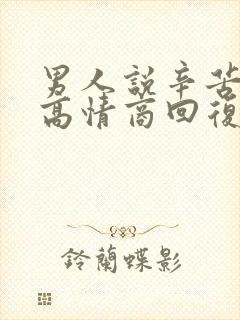 男人說辛苦
高情商回復
鈴蘭蝶影